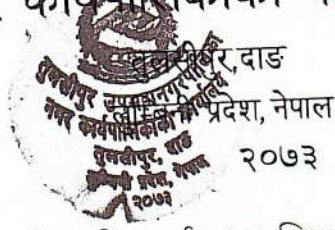 कार्यपालिकाको
तुलसीपुर, दाङ
लुम्बिनी प्रदेश, नेपाल
२०७३
तुलसीपुर उपमहानगरपालिका
नगर कार्यपालिकाको कार्यालय
तुलसीपुर, दाङ
लुम्बिनी प्रदेश, नेपाल
२०७३